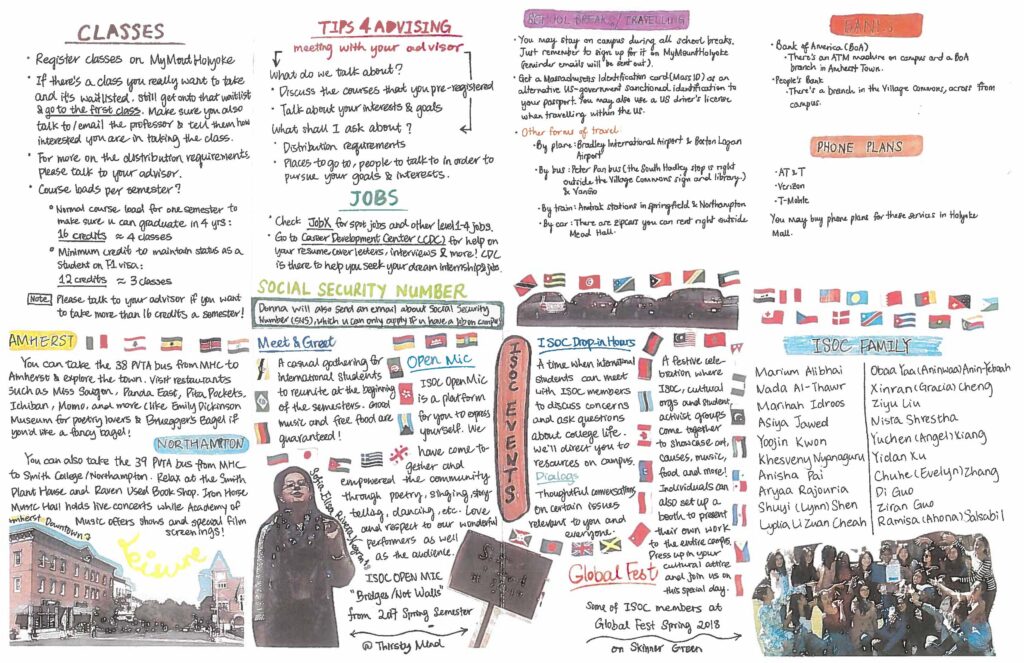 CLASSES
• Register classes on MyMountHolyoke
• If there's a class you really want to take
and it's waitlisted, still get onto that waitlist
& go to the first class. Make sure you also
talk to/email the professor & tell them how
interested you are in taking the class.
• For more on the distribution requirements
please talk to your advisor.
• Course loads per semester?
• Normal course load for one semester to
make sure u can graduate in 4 yrs:
16 credits ≈ 4 classes
• Minimum credit to maintain status as a
student on F1 visa:
12 credits ≈ 3 classes
Note: Please talk to your advisor if you want
to take more than 16 credits a semester!
TIPS 4 ADVISING
meeting with your advisor
What do we talk about?
• Discuss the courses that you pre-registered
• Talk about your interests & goals
What shall I ask about?
• Distribution requirements
• Places to go to, people to talk to in order to
pursue your goals & interests.
JOBS
• Check JobX for spot jobs and other level 1-4 jobs.
• Go to Career Development Center (CDC) for help on
your resume, cover letters, interviews & more! CDC
is there to help you seek your dream internship & job.
SOCIAL SECURITY NUMBER
Donna will also send an email about Social Security
Number (SNS), which u can only apply if u have a job on campus
SCHOOL BREAKS/TRAVELLING
• You may stay on campus during all school breaks.
Just remember to sign up for it on MyMountHolyoke
(reminder emails will be sent out).
• Get a Massachusetts Identification card (Mass ID) as an
alternative US-government sanctioned identification to
your passport. You may also use a US driver's license
when travelling within the US.
• Other forms of travel:
• By plane: Bradley International Airport & Boston Logan
Airport
• By bus: Peter Pan bus (the South Hadley stop is right
outside the Village Commons sign and library)
& VanGo
• By train: Amtrak stations in Springfield & Northampton
• By car: There are zipcars you can rent right outside
Mead Hall.
BANKS
• Bank of America (BoA)
• There's an ATM machine on campus and a BoA
branch in Amherst Town.
• People's Bank
• There's a branch in the Village Commons, across from
campus.
PHONE PLANS
• AT & T
• Verizon
• T-Mobile
You may buy phone plans for these services in Holyoke
Mall.
AMHERST
You can take the 38 PVTA bus from MHC to
Amherst & explore the town. Visit restaurants
such as Miss Saigon, Panda East, Pita Pockets,
Ichiban, Momo, and more (like Emily Dickinson
Museum for poetry lovers & Bruegger's Bagel if
you'd like a fancy bagel!
NORTHAMPTON
You can also take the 39 PVTA bus from MHC
to Smith College/Northampton. Relax at the Smith
Plant House and Raven Used Book Shop. Iron Horse
Music Hall holds live concerts while Academy of
Music offers shows and special film
screenings!
Amherst Downtown
Meet & Greet
A casual gathering for
International Students
to reunite at the beginning
of the semesters. Good
music and free food are
guaranteed!
Open Mic
ISOC Open Mic
is a platform
for you to express
yourself. We
have come to-
gether and
empowered the community
through poetry, singing, story
telling, dancing, etc. Love
and respect to our wonderful
performers as well
as the audience.
Sofia Elisa Rivera
ISOC OPEN MIC
"Bridges/Not Walls"
from 2017 Spring Semester
@ Thirsty Mind
ISOC EVENTS
ISOC Drop-in Hours
A time when international
students can meet
with ISOC members
to discuss concerns
and ask questions
about college life.
We'll direct you to
resources on campus.
Dialogs
Thoughtful conversations
on certain issues
relevant to you and
everyone.
Global Fest
A festive cele-
bration where
ISOC, cultural
orgs and student
activist groups
come together
to showcase art,
causes, music,
food and more!
Individuals can
also set up a
booth to present
their own work
to the entire campus.
Dress up in your
cultural attire
and join us on
this special day.
Some of ISOC members at
Global Fest Spring 2018
on Skinner Green
ISOC FAMILY
Marium Alibhai
Nada Al-Thawr
Marihan Idroos
Asiya Jawed
Yoojin Kwon
Khesveny Nypnaguru
Anisha Pai
Aryaa Rajouria
Shuyi (Lynn) Shen
Lydia Li Zuan Cheah
Obaa Yaa (Aninwaa) Anin-Yeboah
Xinran (Gracia) Cheng
Ziyu Liu
Nisra Shrestha
Yuchen (Angel) Xiang
Yidan Xu
Chuhe (Evelyn) Zhang
Di Guo
Ziran Guo
Ramisa (Ahona) Salsabil